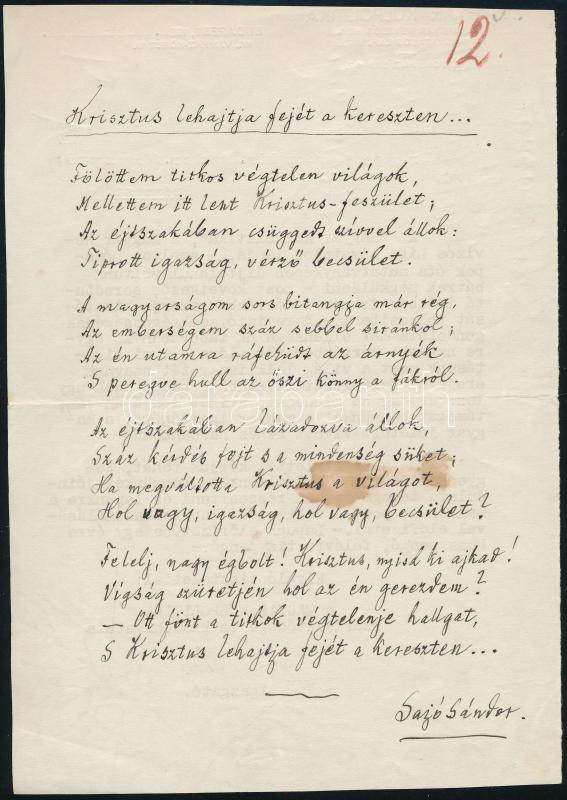 12.
Krisztus lehajtja fejét a kereszten...
Fölöttem titkos végtelen világok,
Mellettem itt lent Krisztus-feszület;
Az éjtszakában csüggedt szívvel állok:
Tiprott igazság, vérző becsület.
A magyarságom sors bitangja már rég,
Az emberségem száz sebbel siránkol;
Az én utamra ráfeküdt az árnyék
S peregve hull az őszi könny a fákról.
Az éjtszakában lázadozva állok,
Száz kérdés fojt s a mindenség süket;
Ha megváltotta Krisztus a világot,
Hol vagy, igazság, hol vagy, becsület?
Felelj, nagy égbolt! Krisztus, nyisd ki ajkad!
Vígság szüretjén hol az én gerezdem?
– Ott fönt a titkok végtelenje hallgat,
S Krisztus lehajtja fejét a kereszten...
Sajó Sándor.
darabanth